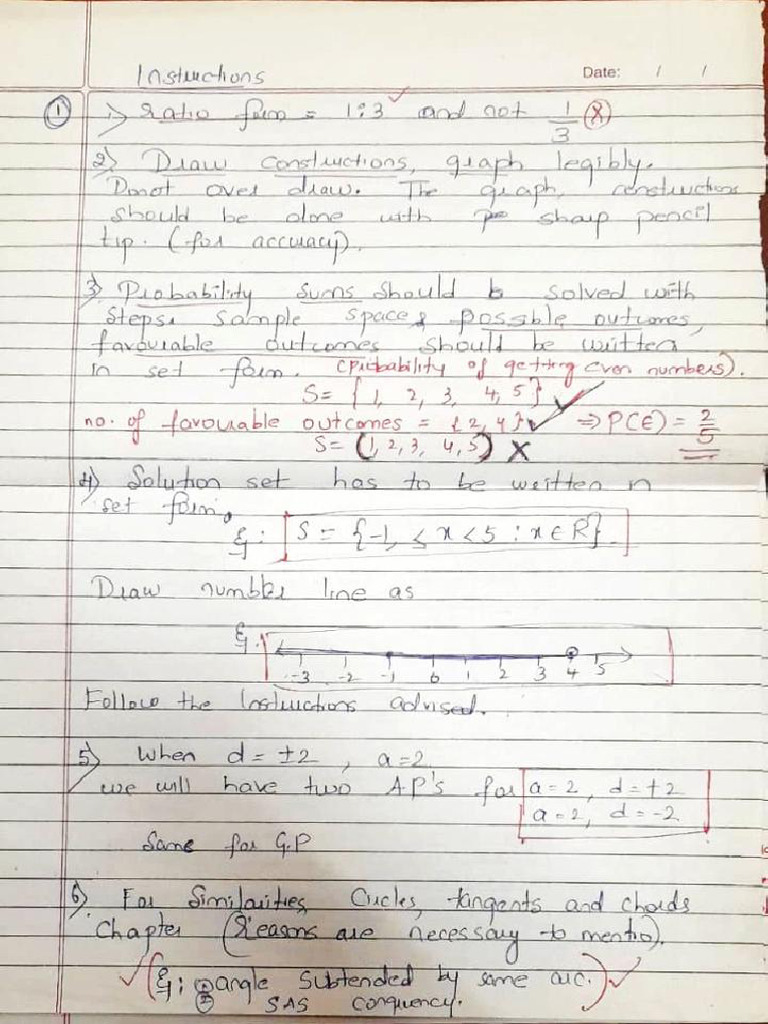 Instructions Date: / /
① 1) ratio form = 1:3 ✓ and not 1/3 ⓧ
2) Draw constructions, graph legibly.
Donot over draw. The graph, constructions
should be done with sharp pencil
tip. (for accuracy).
3) Probability sums should b solved with
steps. Sample space, possible outcomes,
favourable outcomes should be written
in set form. (Probability of getting even numbers).
S = { 1, 2, 3, 4, 5 } ✓
no. of favourable outcomes = {2, 4} ✓ ⇒ P(E) = 2/5
S = (1, 2, 3, 4, 5) X
4) Solution set has to be written n
set form.
Eg: S = {-1, ≤ x < 5 : x ∈ R}.
Draw number line as
Eg.
-3 -2 -1 0 1 2 3 4 5
Follow the Instructions advised.
5) When d = ±2, a = 2
we will have two AP's for a = 2, d = +2
a = 2, d = -2
Same for G.P
6) For Similarities, Circles, tangents and chords
Chapter (Reasons are necessary to mentio).
✓ (Eg: angle subtended by same arc.) ✓
② SAS congruency.